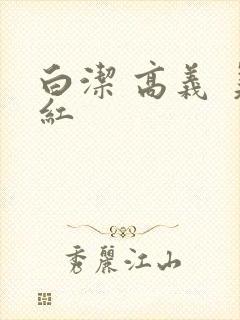 白潔 高義
紅
秀麗江山